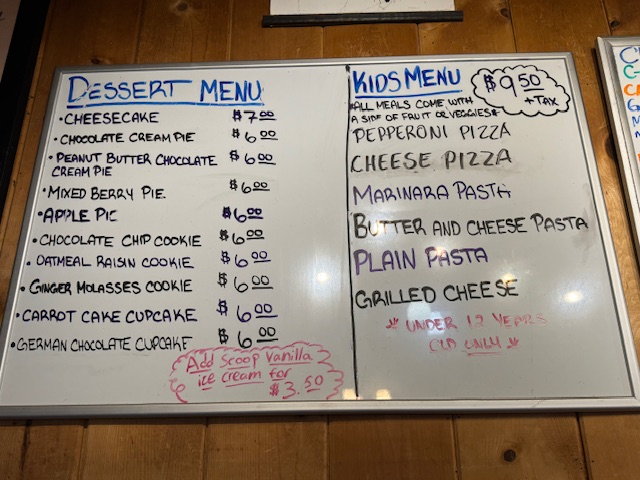 DESSERT MENU
• CHEESECAKE $7.00
• CHOCOLATE CREAM PIE $6.00
• PEANUT BUTTER CHOCOLATE
CREAM PIE $6.00
• MIXED BERRY PIE. $6.00
• APPLE PIE $6.00
• CHOCOLATE CHIP COOKIE $6.00
• OATMEAL RAISIN COOKIE $6.00
• GINGER MOLASSES COOKIE $6.00
• CARROT CAKE CUPCAKE $6.00
• GERMAN CHOCOLATE CUPCAKE $6.00
Add scoop vanilla
ice cream for
$3.50
KIDS MENU
$9.50
+ TAX
*ALL MEALS COME WITH
A SIDE OF FRUIT OR VEGGIES*
PEPPERONI PIZZA
CHEESE PIZZA
MARINARA PASTA
BUTTER AND CHEESE PASTA
PLAIN PASTA
GRILLED CHEESE
* UNDER 12 YEARS
OLD ONLY *